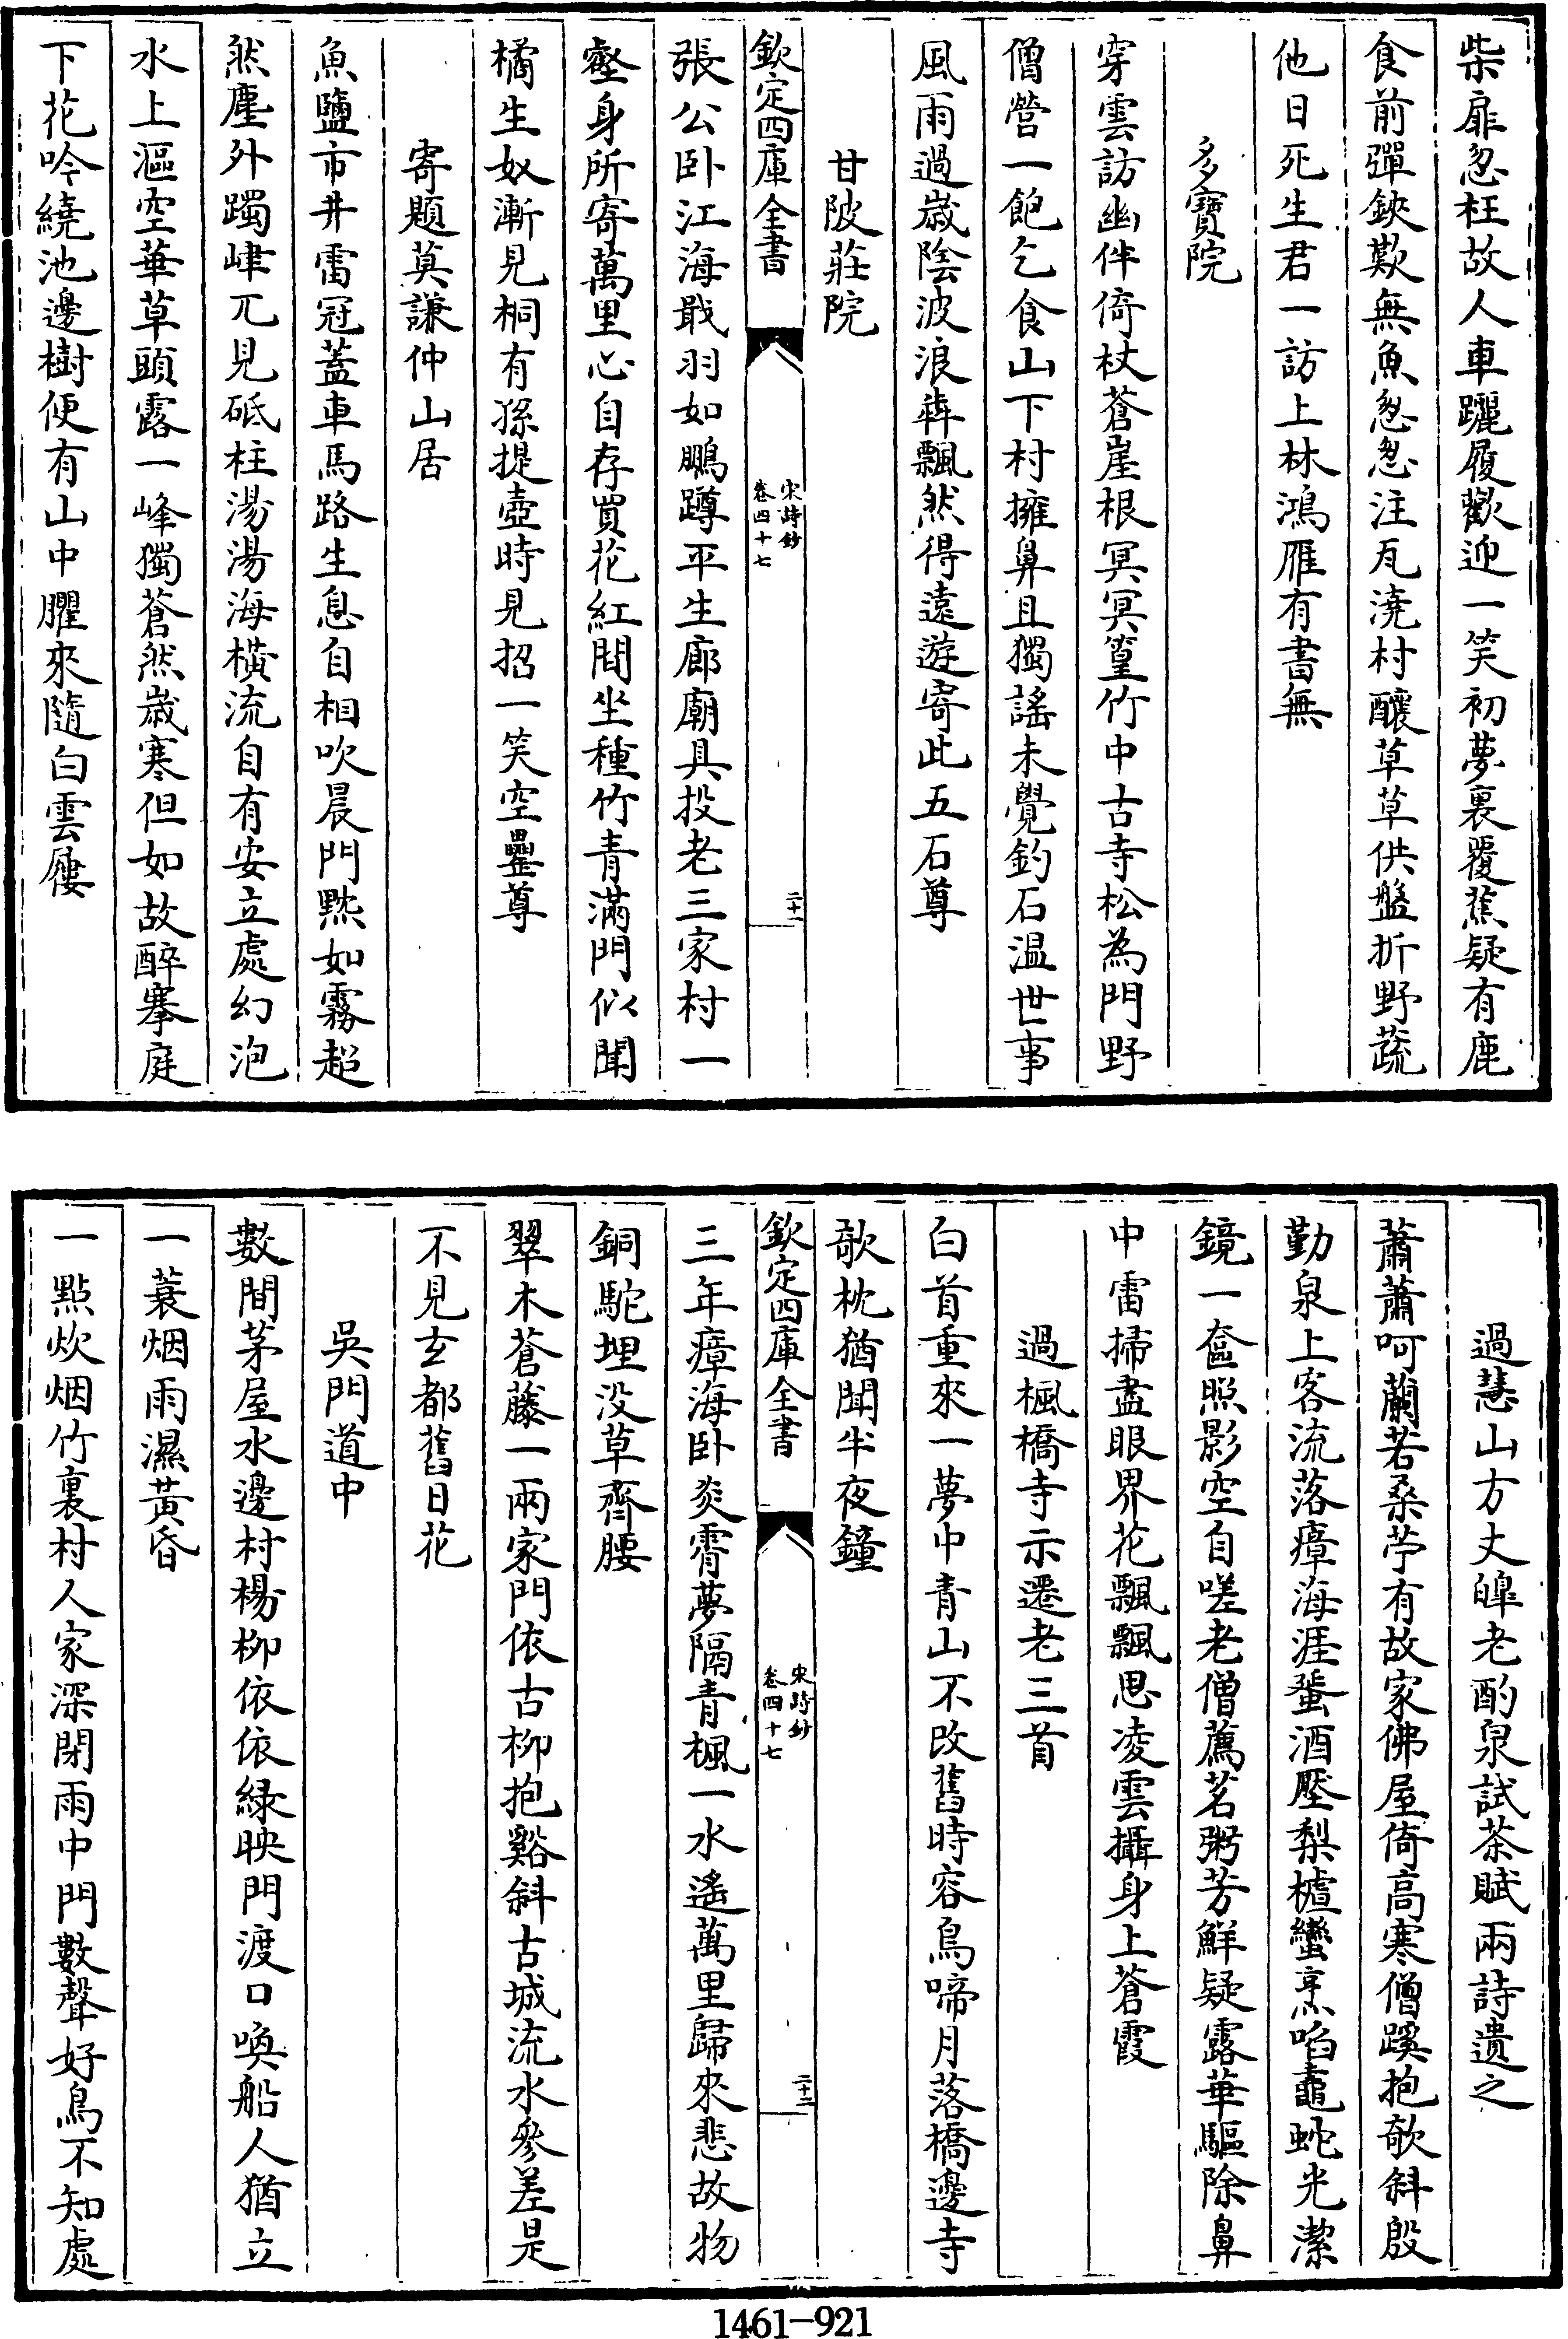 柴扉忽枉故人車躧履歡迎一笑初夢裏覆蕉疑有鹿
食前彈鋏歎無魚怱怱注瓦澆村釀草草供盤折野蔬
他日死生君一訪上林鴻雁有書無
多寶院
穿雲訪幽伴倚杖蒼崖根冥冥篁竹中古寺松為門野
僧營一飽乞食山下村擁鼻且獨謡未覺釣石温世事
風雨過嵗隂波浪犇飄然得逺遊寄此五石尊
甘陂莊院
欽定四庫全書
宋詩鈔
卷四十七
二十一
張公卧江海戢羽如鵬蹲平生廊廟具投老三家村一
壑身所寄萬里心自存買花紅間坐種竹青滿門似聞
橘生奴漸見桐有孫提壺時見招一笑空罍尊
寄題莫謙仲山居
魚鹽市井雷冠蓋車馬路生息自相吹晨門黙如霧超
然塵外躅嵂兀見砥柱湯湯海橫流自有安立處幻泡
水上漚空華草頭露一峰獨蒼然嵗寒但如故醉搴庭
下花吟繞池邊樹便有山中臞來隨白雲屨
過慧山方丈皥老酌泉試茶賦兩詩遺之
蕭蕭呵蘭若桑苧有故家佛屋倚高寒僧蹊抱欹斜殷
勤泉上客流落瘴海涯蜑酒壓梨樝蠻烹㗖鼃蛇光潔
鏡一奩照影空自嗟老僧薦茗粥芳鮮疑露華驅除鼻
中雷掃盡眼界花飄飄思凌雲攝身上蒼霞
過楓橋寺示遷老三首
白首重來一夢中青山不改舊時容烏啼月落橋邊寺
欹枕猶聞半夜鐘
欽定四庫全書
宋詩鈔
卷四十七
二十二
三年瘴海卧炎霄夢隔青楓一水遙萬里歸來悲故物
銅駝埋没草齊腰
翠木蒼藤一兩家門依古柳抱谿斜古城流水參差是
不見玄都舊日花
吳門道中
數間茅屋水邊村楊柳依依緑映門渡口喚船人獨立
一蓑烟雨濕黃昏
一點炊烟竹裏村人家深閉雨中門數聲好鳥不知處
1461-921